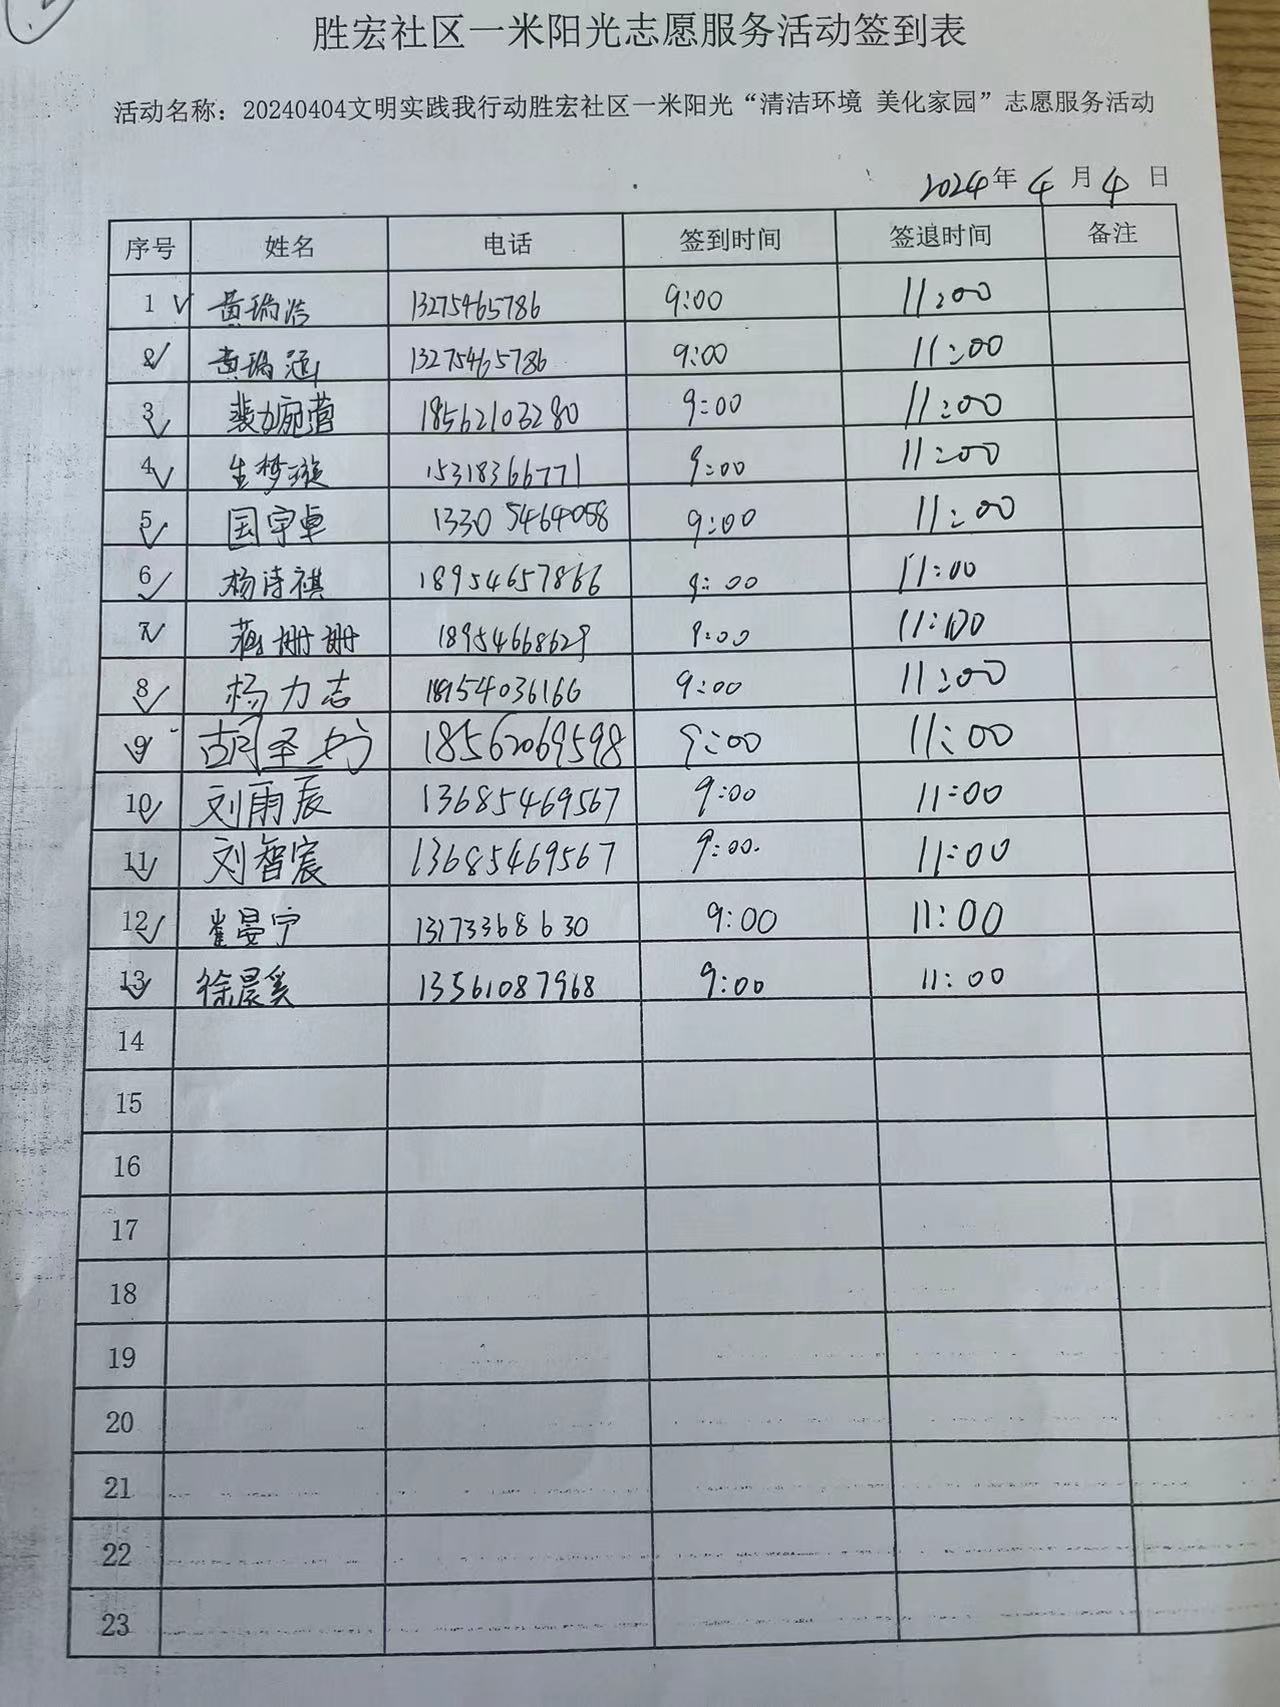 胜宏社区一米阳光志愿服务活动签到表
活动名称：20240404文明实践我行动胜宏社区一米阳光“清洁环境 美化家园”志愿服务活动
2024年4月4日
序号 姓名 电话 签到时间 签退时间 备注
1 黄瑞浩 13275465786 9:00 11:00
2 黄瑞涵 13275465786 9:00 11:00
3 18562103280 9:00 11:00
4 生梦璇 15318366771 9:00 11:00
5 国宇卓 13305464058 9:00 11:00
6 杨诗祺 18954657866 9:00 11:00
7 姗姗 18954668629 9:00 11:00
8 杨力志 18954036166 9:00 11:00
9 胡圣 18562069598 9:00 11:00
10 刘雨辰 13685469567 9:00 11:00
11 刘智宸 13685469567 9:00. 11:00
12 崔晏宁 13173368630 9:00 11:00
13 徐晨奚 13561087968 9:00 11:00
14
15
16
17
18
19
20
21
22
23